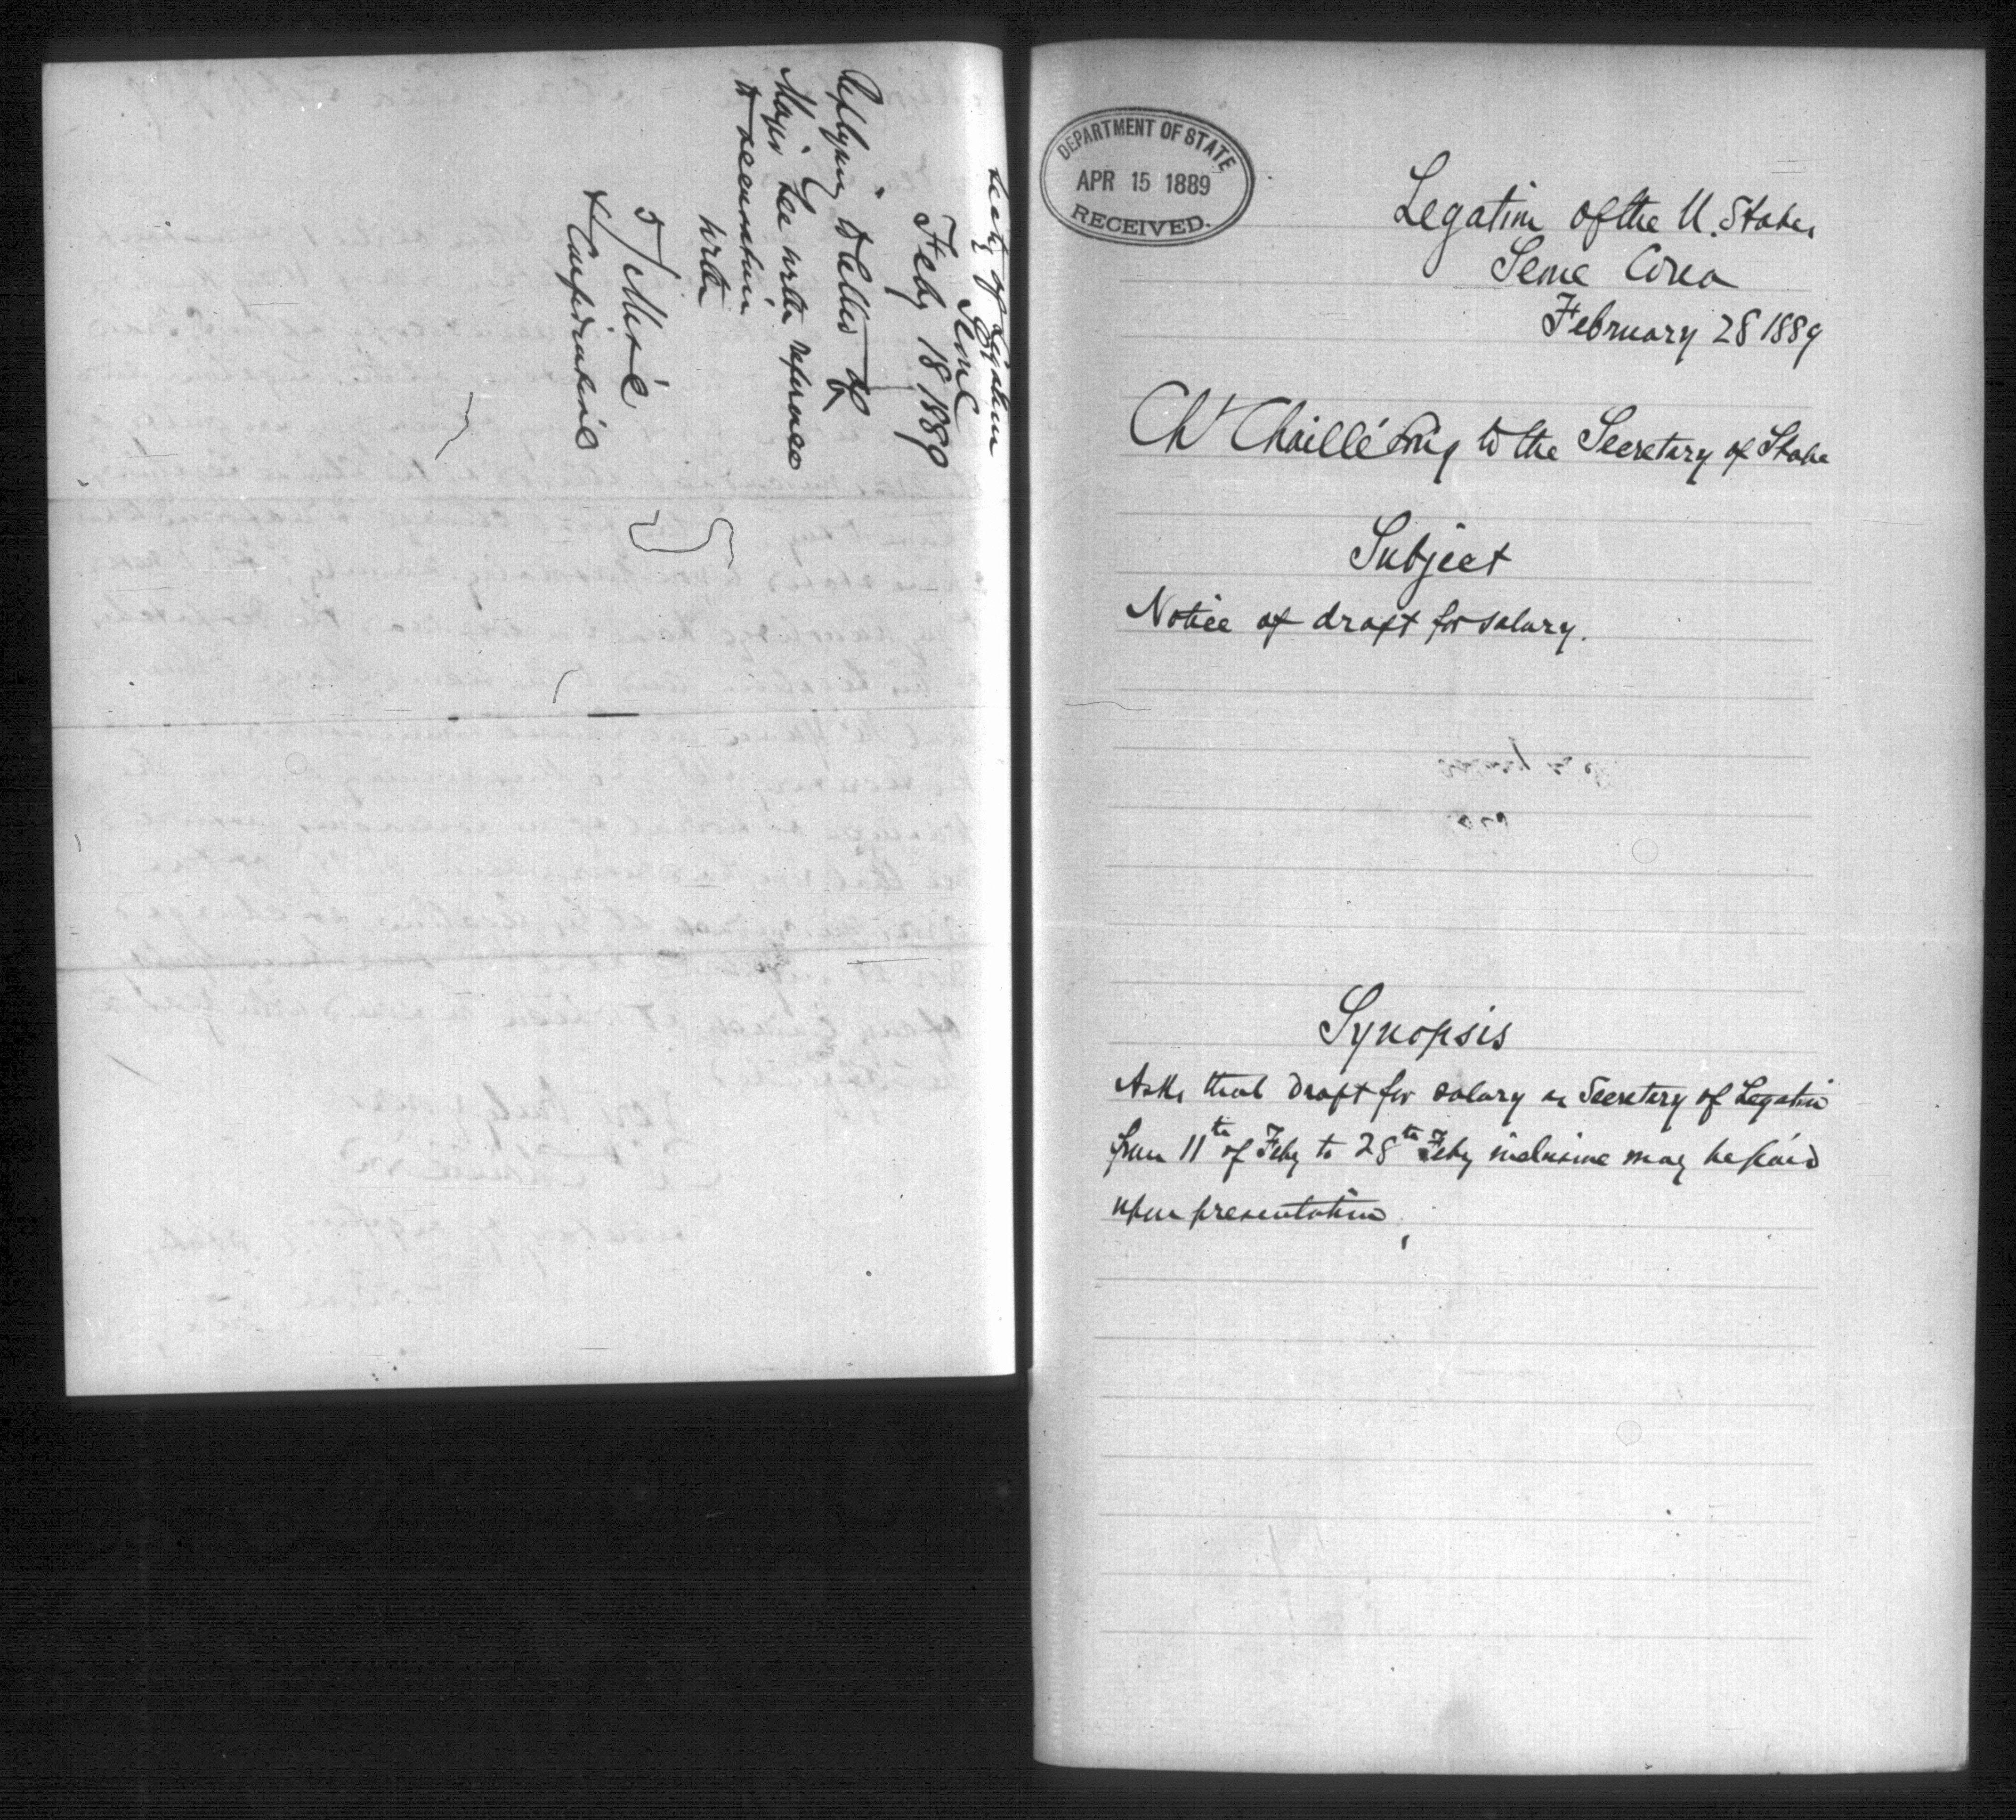 Secty of Legation
Seoul
Feby 18 1889
Replying to letter of
Major Lee with reference
to accusation
with
5/Mss
& Confidential
DEPARTMENT OF STATE
APR 15 1889
RECEIVED.
Legation of the U. States
Seoul Corea
February 28 1889
Ch Chaillé Long to the Secretary of State
Subject
Notice of draft for salary.
Synopsis
Asks that draft for salary as Secretary of Legation
from 11th of Feby to 28th Feby inclusive may be paid
upon presentation.